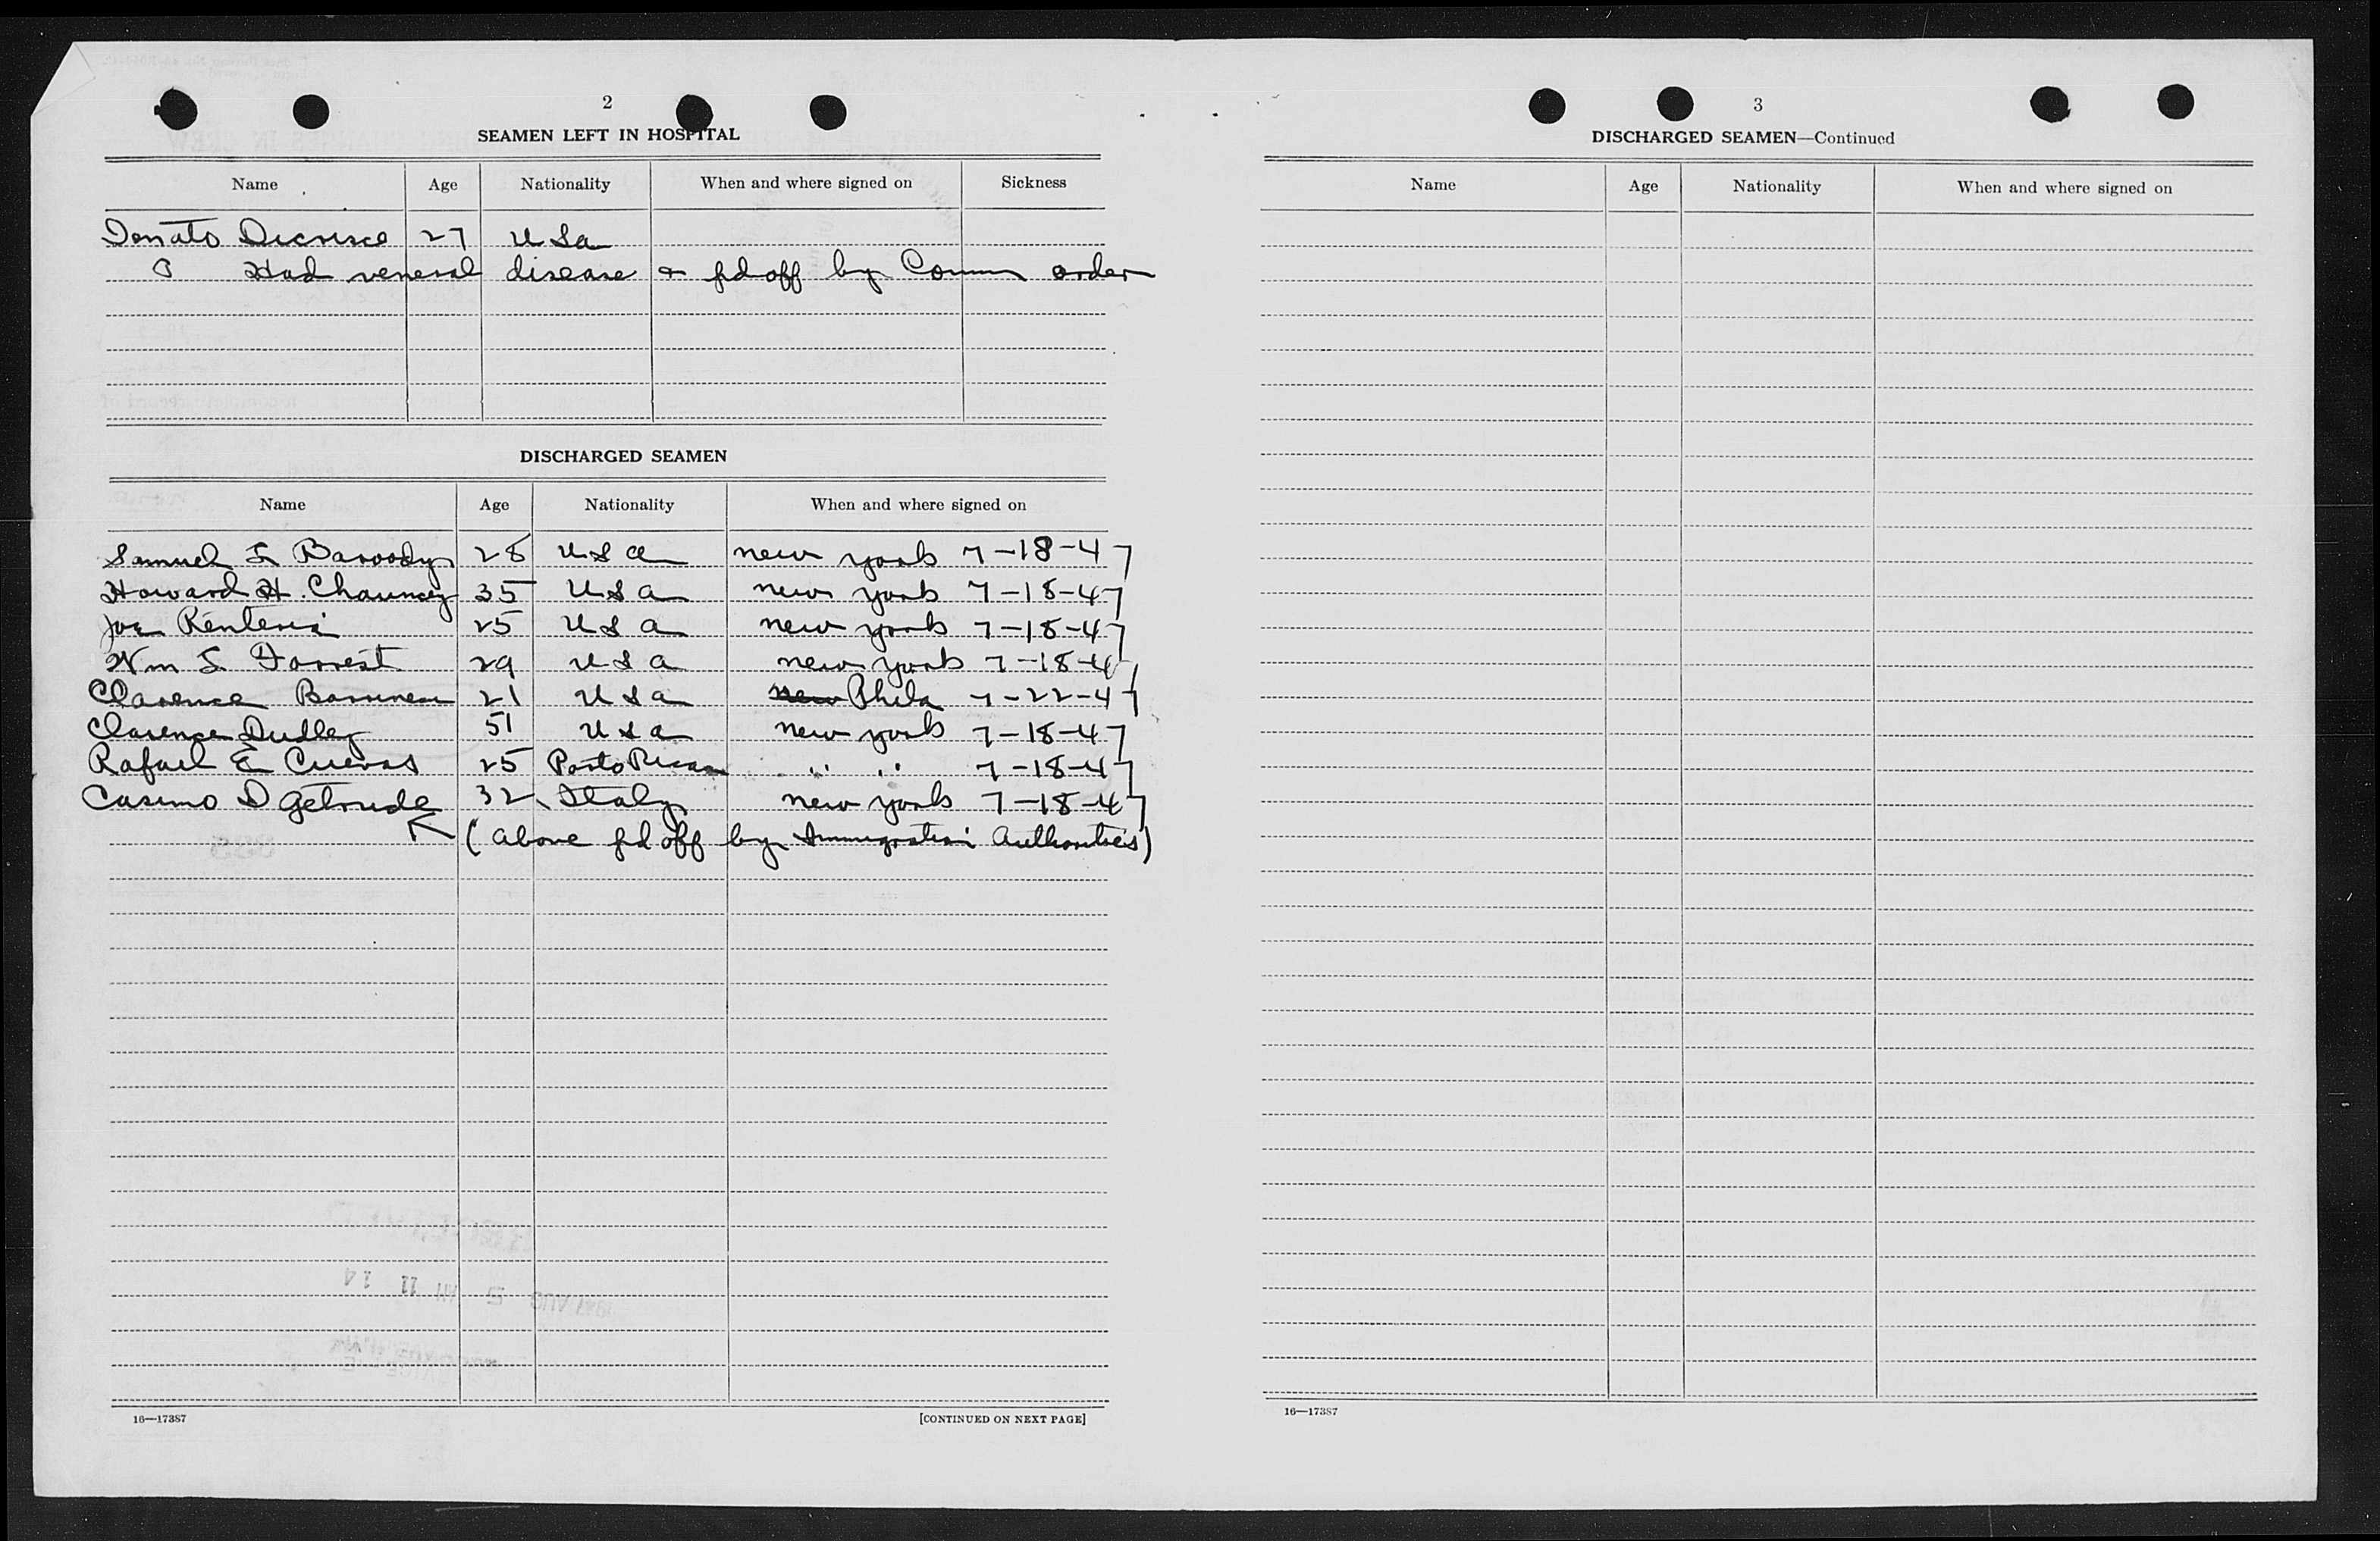 2
SEAMEN LEFT IN HOSPITAL
Name Age Nationality When and where signed on Sickness
Donato Decrisce 27 USa
Had veneral disease & pd off by Comm order
DISCHARGED SEAMEN
Name Age Nationality When and where signed on
Samuel L Baroody 28 USa new york 7-18-47
Howard H. Chauncey 35 USa new york 7-18-47
Joe Renteria 25 USa new york 7-18-47
Wm L Forrest 29 USa new york 7-18-47
Clarence 21 USa new Phila 7-22-47
Clarence Dudley 51 USa new york 7-18-47
Rafael E Cuevas 25 Porto Rican " " 7-18-47
Casimo D Getrude 32 Italy new york 7-18-47
(above pd off by Immigration Authorities)
16—17387 [CONTINUED ON NEXT PAGE]
3
DISCHARGED SEAMEN—Continued
Name Age Nationality When and where signed on
16—17387